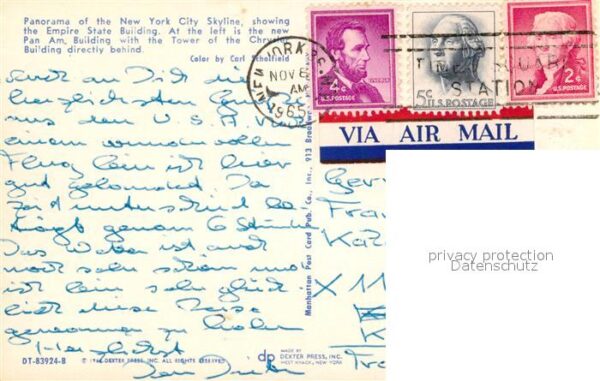 Panorama of the New York City Skyline, showing
the Empire State Building. At the left is the new
Pan Am, Building with the Tower of the Chrysler
Building directly behind.
Color by Carl Scholfield
an Dich die
herzlichsten
aus der U.S.A. Nach
einem wundervollen
Flug bin ich hier
gut gelandet. Der
Zeitunterschied be-
trägt genau 6 Stunden
Das Wetter ist auch
noch sehr schön und
ich bin sehr glück-
lich diese Reise
genommen zu haben
Herzlichst
DT-83924-B
DEXTER PRESS, INC. ALL RIGHTS RESERVED
Manhattan Post Card Pub. Co., Inc., 913 Broadway
dp
MADE BY
DEXTER PRESS, INC.
WEST NYACK, NEW YORK
NEW YORK
NOV 8
AM
1965
4¢
U.S. POSTAGE
5¢
U.S. POSTAGE
2¢
U.S. POSTAGE
TIMES SQUARE
STATION
VIA AIR MAIL
privacy protection
Datenschutz
Fra
X 11